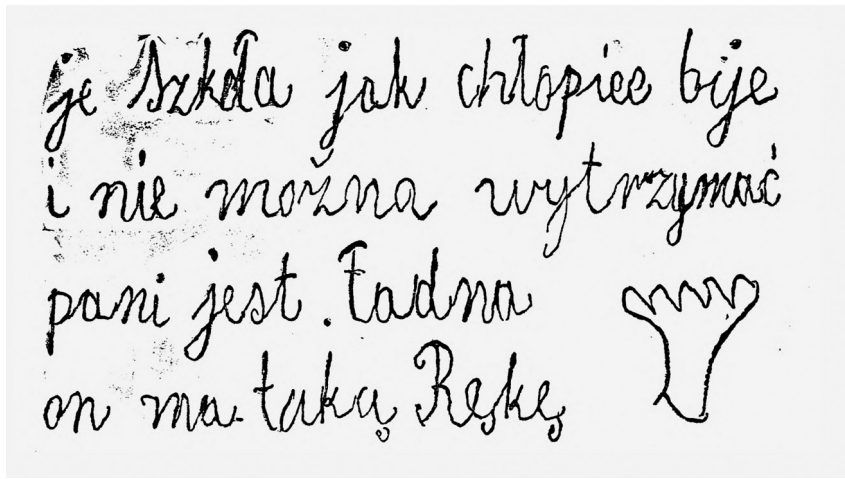 je Szkoła jak chłopiec bije
i nie można wytrzymać
pani jest. Ładna
on ma taką Rękę